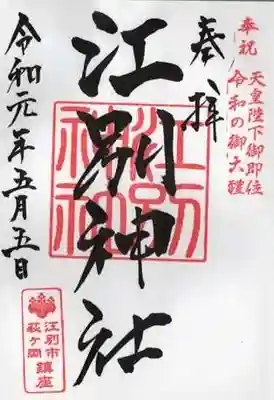 奉祝
天皇陛下御即位
令和の御大禮
奉拝
江別神社
江別神社
令和元年五月五日
江別市
萩ヶ岡
鎮座